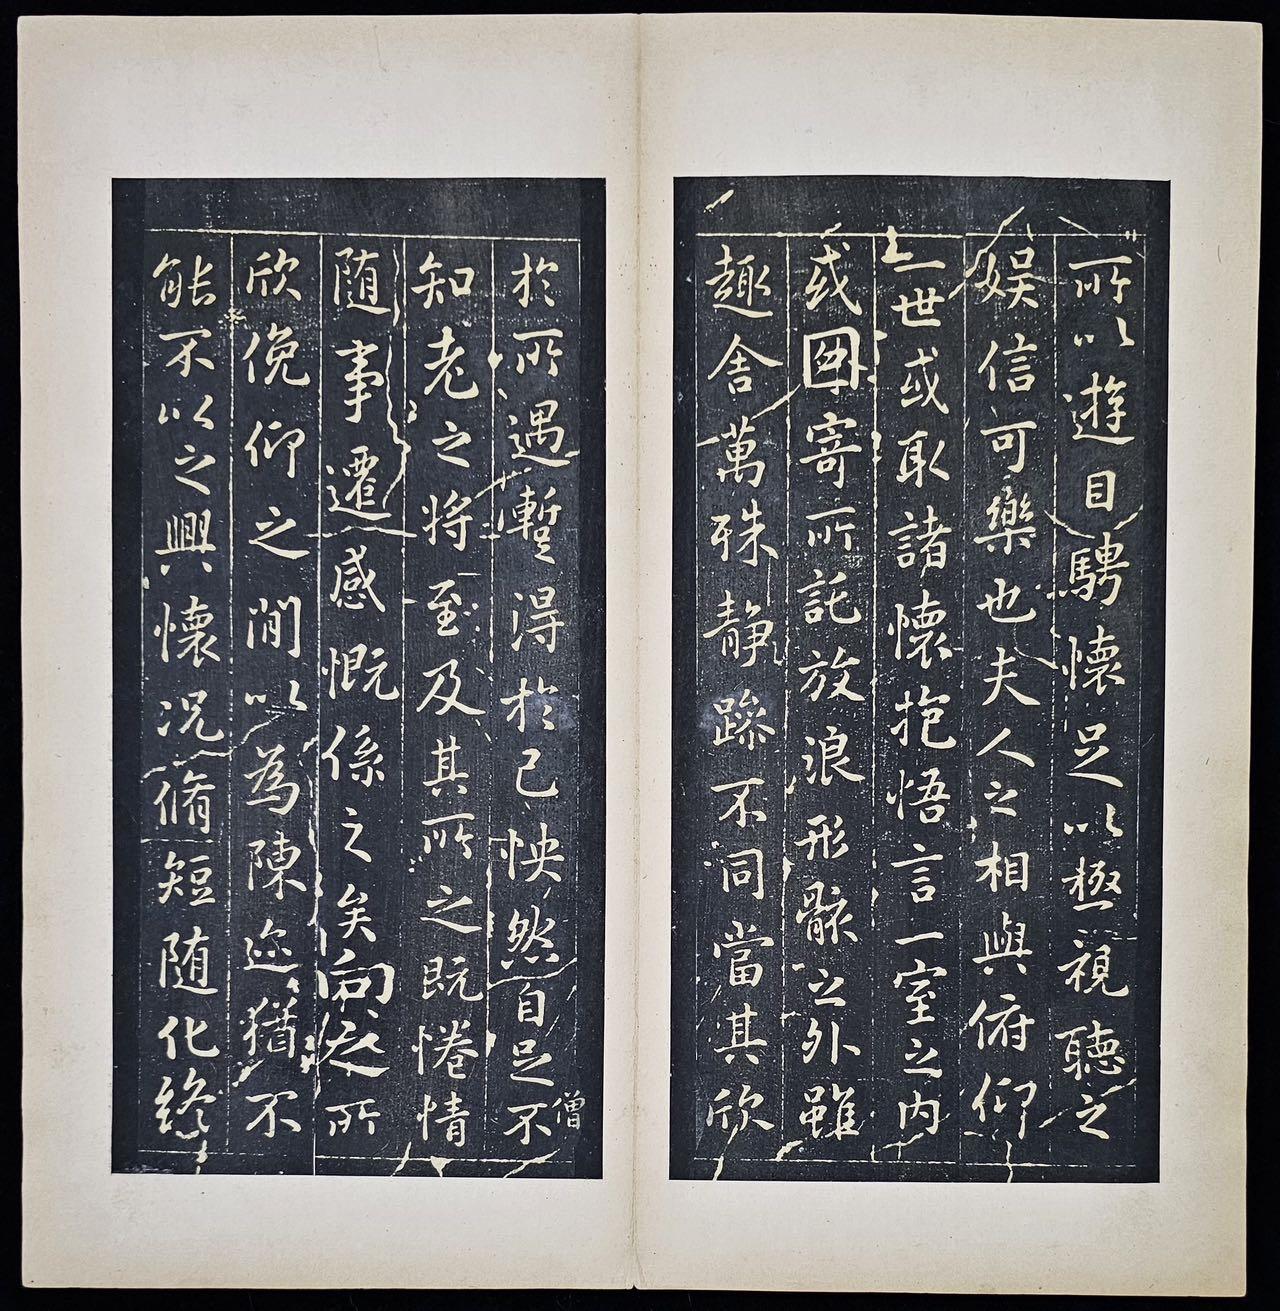 所以遊目騁懷足以極視聽之
娱信可樂也夫人之相與俯仰
一世或取諸懷抱悟言一室之内
或因寄所託放浪形骸之外雖
趣舎萬殊静躁不同當其欣
於所遇蹔得於己怏然自足不
僧
知老之将至及其所之既惓情
随事遷感慨係之矣向之所
欣俛仰之間以為陳迹猶不
能不以之興懷况脩短随化終